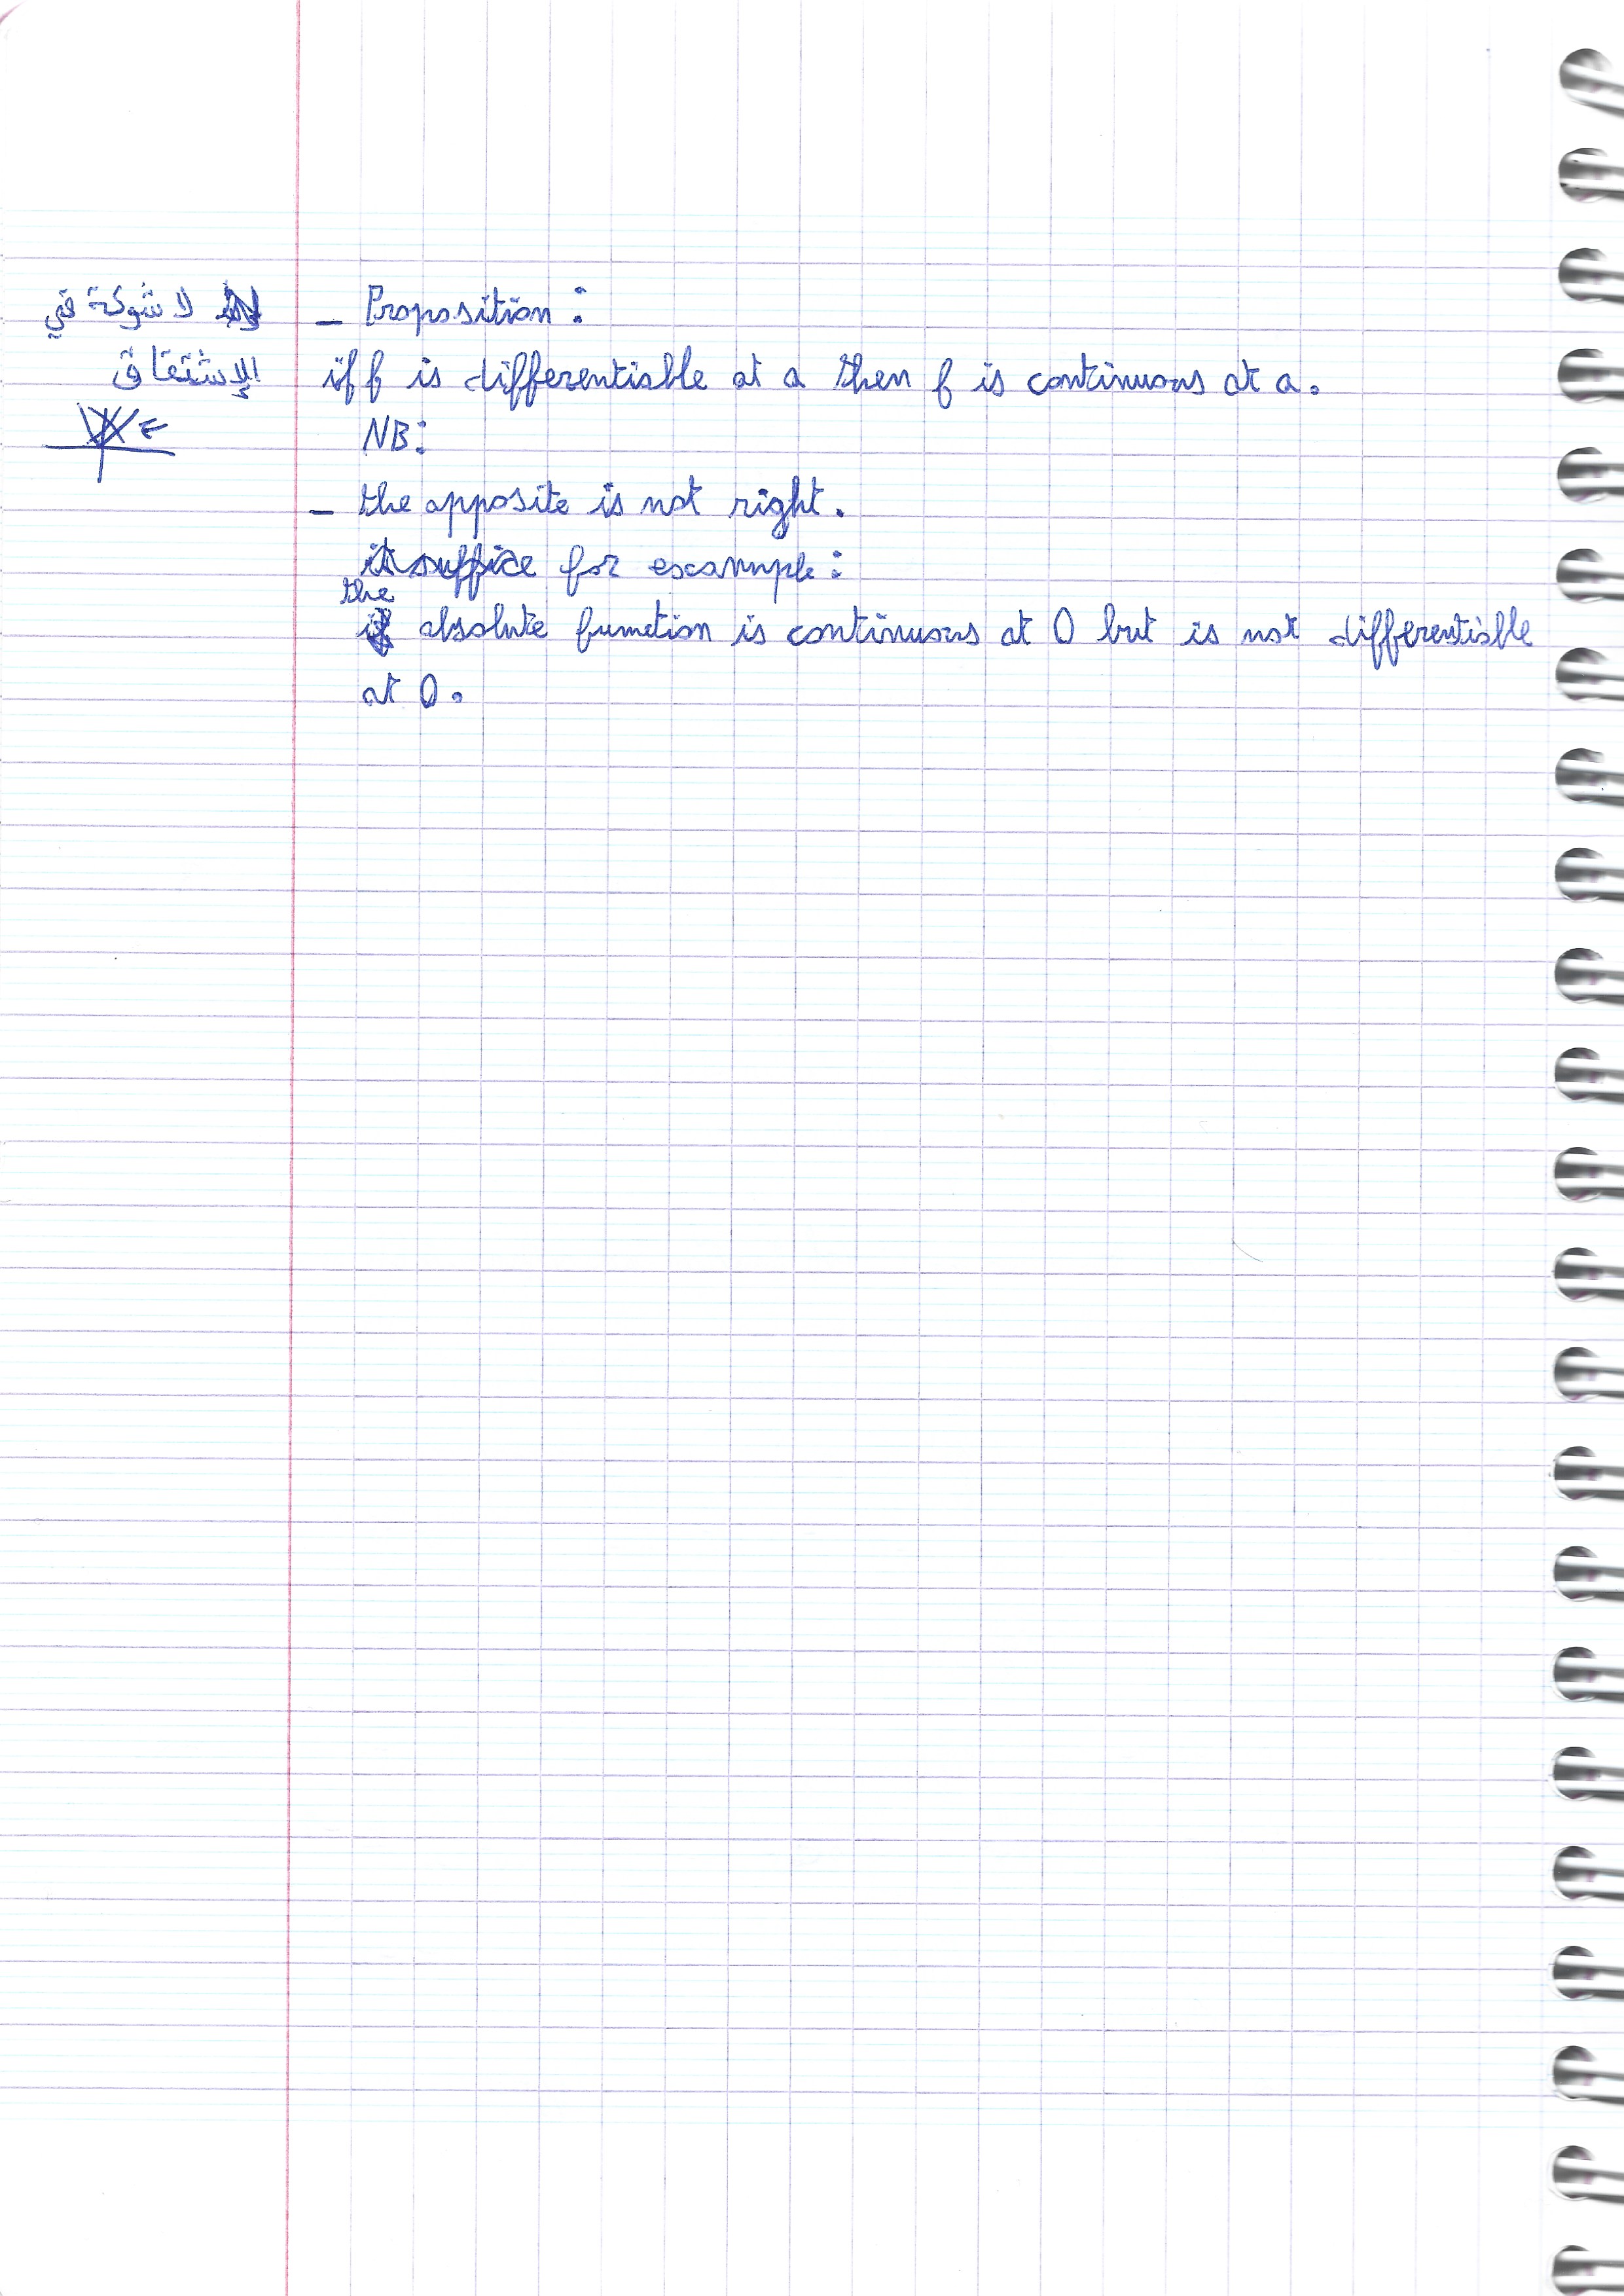 لا شوكة في
الإشتقاق
– Proposition :
if f is differentiable at a then f is continuous at a.
NB:
– the opposite is not right.
it suffice for example :
the
absolute function is continuous at 0 but is not differentiable
at 0.